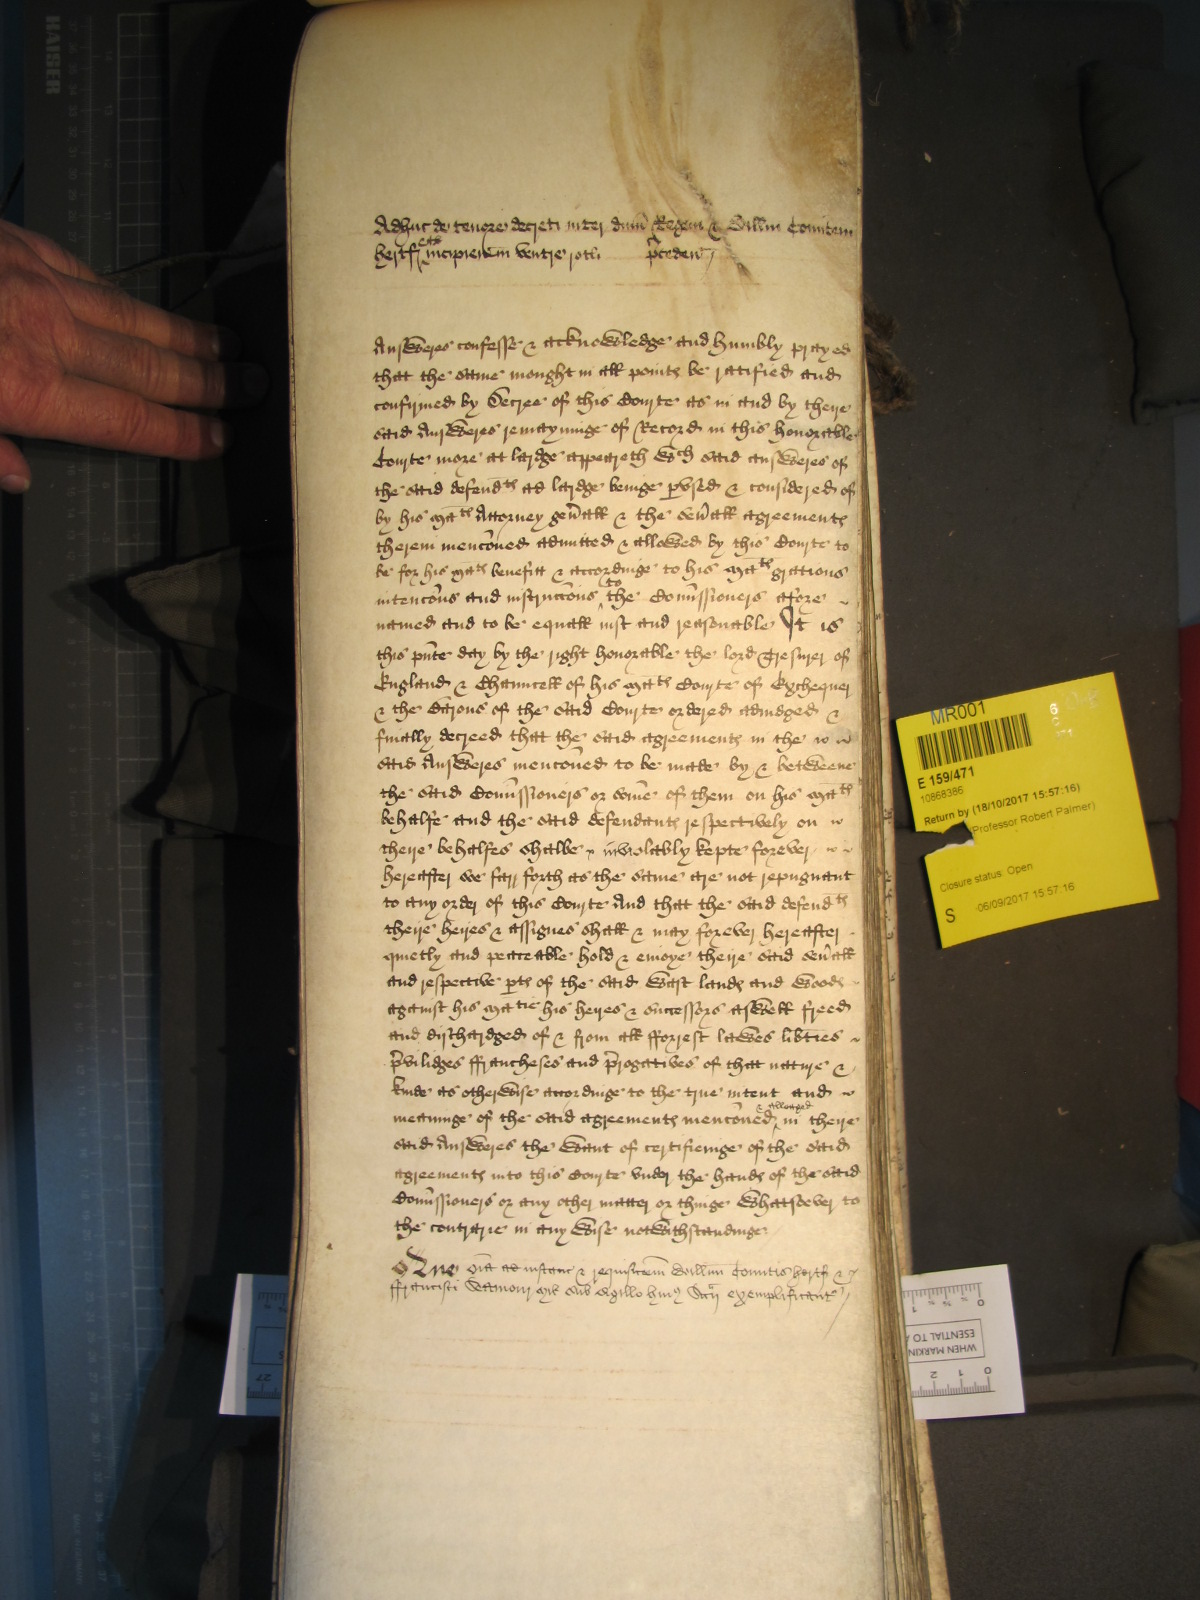 Adhuc de tenore decreti inter dnm Regem & Willm Comitem
hertf etc incipien in ventre rotli preceden
Answeres confesse & acknowledge and humbly prayed
that the same mought in all points be ratified and
confirmed by Decree of this Courte as in and by theire
said Answeres remayninge of Record in this honorable
Courte more at lardge appeareth wch said answeres of
the said defendts at lardge beinge pvsed & considered of
by his matis Attorney gen̄all & the sev̄all agreements
therein menc̄oned admitted & allowed by this Courte to
be for his matis benefitt & accordinge to his matis gratious
intenc̄ons and instrucc̄ons to the Com̄issioners afore
named and to be equall iust and reasonable It is
this p̄nte day by the right honorable the lord Tresurer of
England & Chauncell of his matis Courte of Exchequer
& the Barons of the said Courte ordered adiudged &
finally decreed that the said agreements in the
said Answeres menc̄oned to be made by & betweene
the said Com̄issioners or some of them on his matis
behalfe and the said defendants respectively on
theire behalfes shalbe inviolably kepte forever
hereafter soe farr forth as the same are not repugnant
to any order of this Courte And that the said defendts
theire heires & assignes shall & may forever hereafter
quietly and peaceable hold & enioye theire said sev̄all
and respective pts of the said wast lands and woods
against his matie his heires & successors aswell freed
and dischardged of & from all fforrest lawes lib̄ties
p̄vilidges ffrancheses and p̄rogatives of that nature &
kinde as otherwise accordinge to the true intent and
meaninge of the said agreements menc̄oned & alleaged in theire
said Answeres the want of certifieinge of the said
agreements into this Courte vnder the hands of the said
Com̄issioners or any other matter or thinge whatsoever to
the contrarie in any wise notwithstandinge
Que om̄ia ad instanc & requisic̄oem Willm̄i Comitis hertf &
ffrancisci Seamour sub sigillo huius Sccīi exemplificant
HAISER
MR001
E 159/471
10868386
Return by (18/10/2017 15:57:16)
Professor Robert Palmer)
Closure status: Open
S 06/09/2017 15:57:16
WHEN MARKIN
ESENTIAL TO A
0 1 2
27